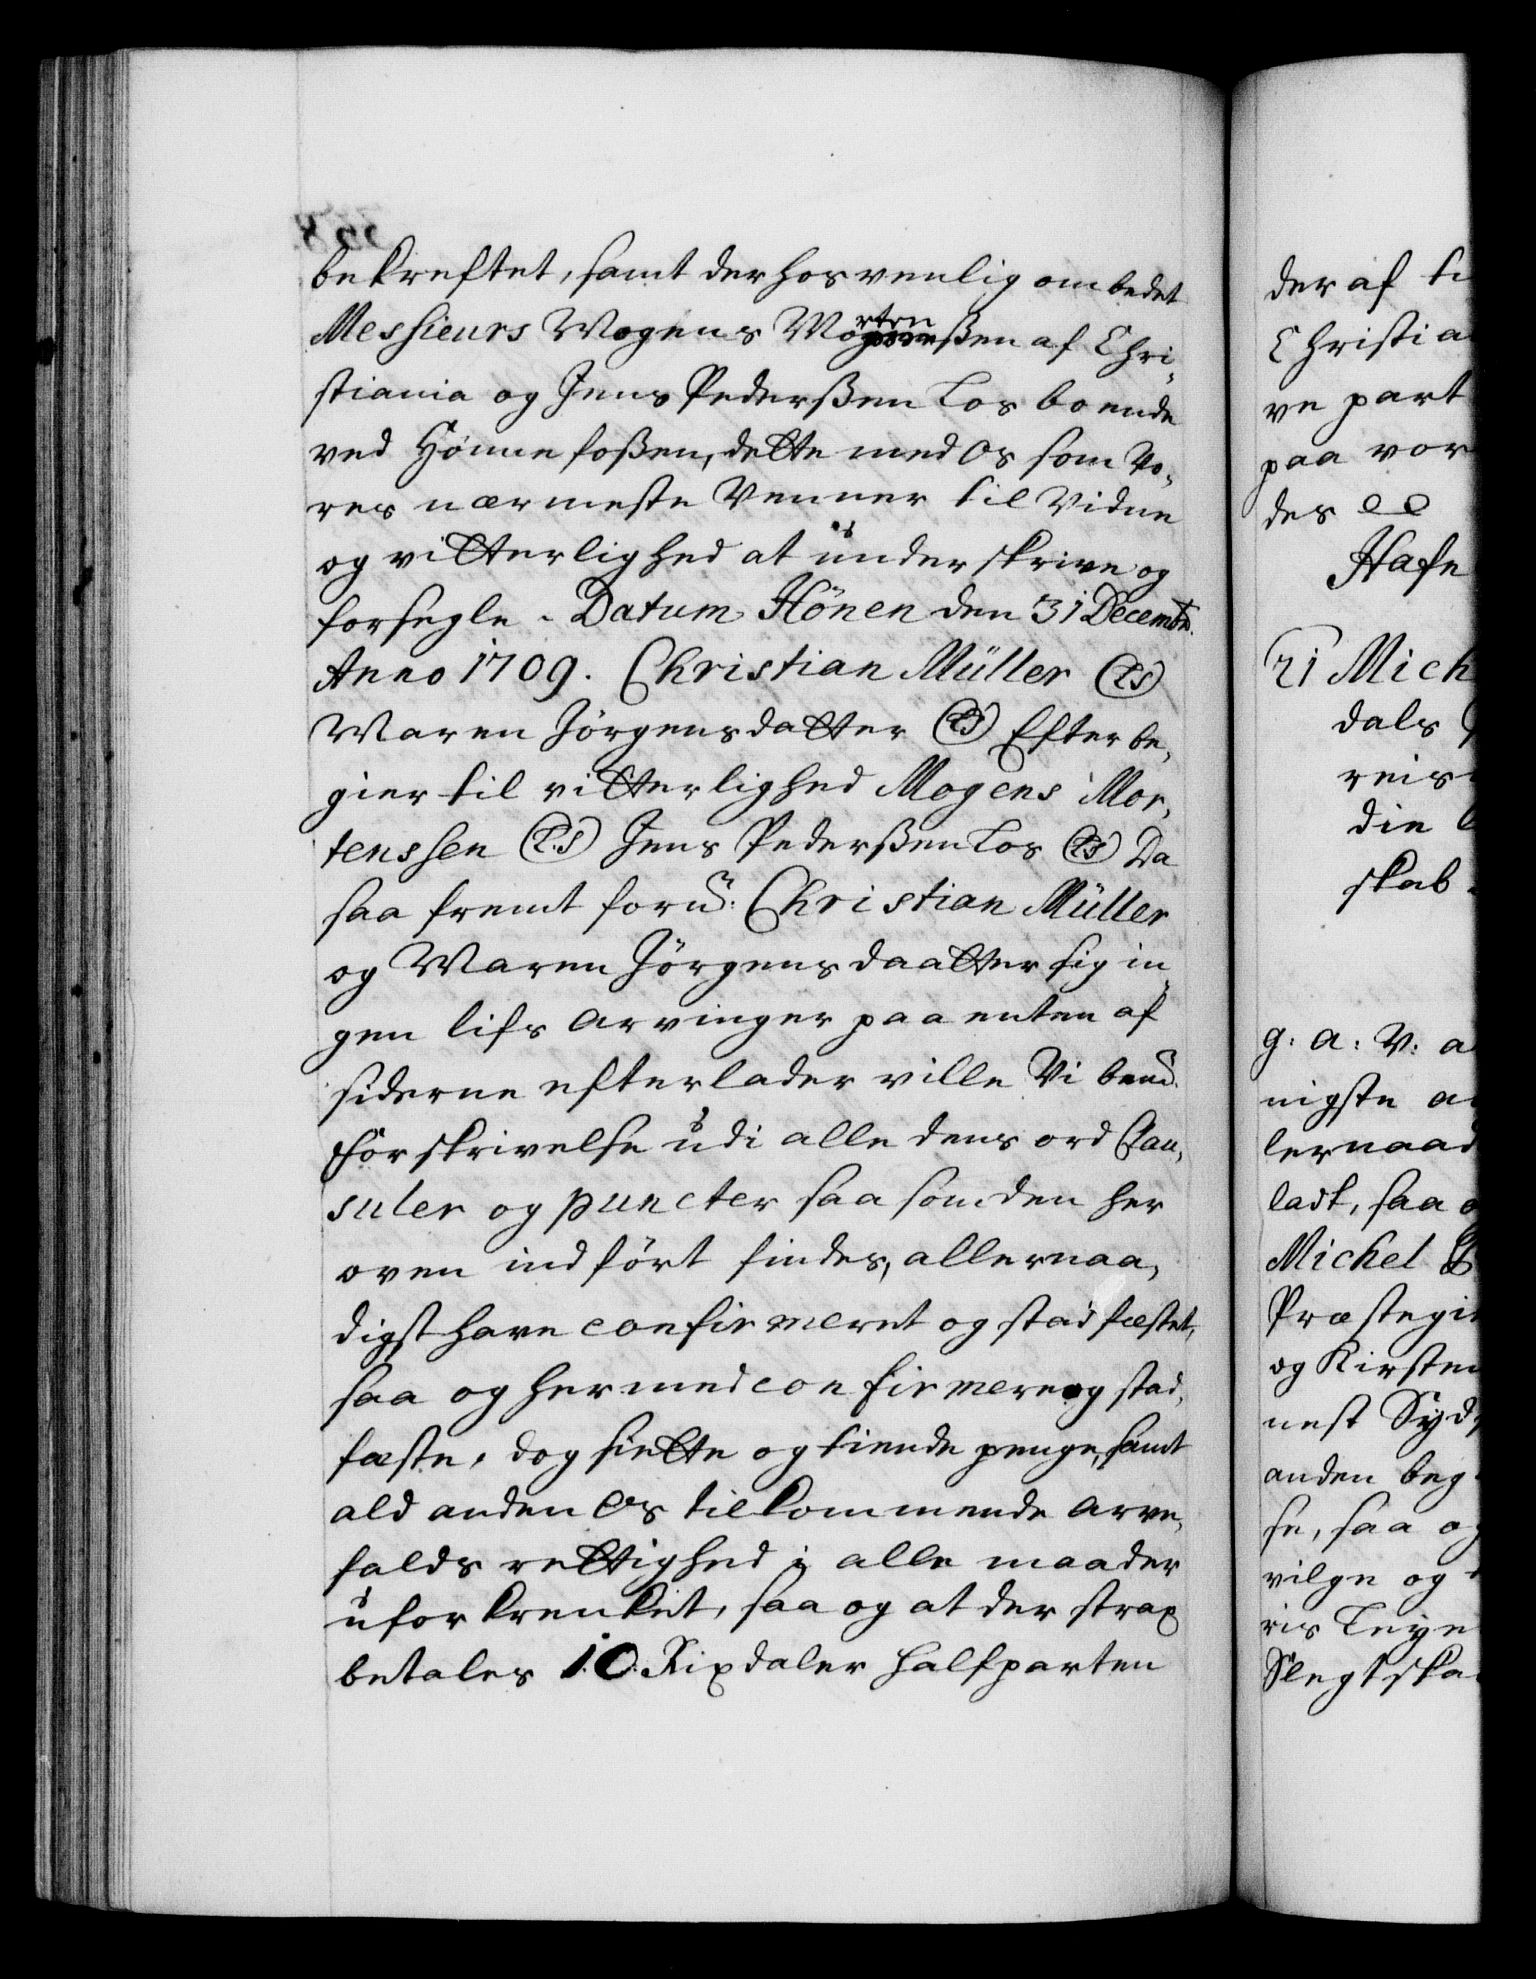 bekreftet, samt derhos venlig ombedet
Messieurs Mogens Mortenßen af Chri,
stiania og Jens Pederßen Los boende
ved Hønnefoßen, dette med os som Vo,
res nærmeste Venner til Vidne
og vitterlighed at underskrive og
forsegle. Datum Hönen den 31 Decembr.
Anno 1709. Christian Müller (LS)
Maren Jörgensdatter (LS) Efter be,
gier til vitterlighed Mogens Mor,
tenssen (LS) Jens Pederßen Los (LS) Da
saa fremt forn: Christian Müller
og Maren Jörgensdaatter sig in,
gen lifs arvinger paa enten af
siderne efterlader ville Vi bem:
forskrivelse udi alle dens ord Clau,
suler og puncter saa som den her
oven indfört findes, allernaa,
digst have confirmeret og stadfæstet,
saa og hermed confirmere og stad,
fæste, dog siette og tiende penge, samt
ald anden Os tilkommende arve,
falds rettighed i alle maader
uforkrenket, saa og at der strax
betales 10. Rixdaler halfparten
der af
Christia
ve part
paa vor
des
Hafn
21 Mich
dals
reis
die
skab
g: a: V: a
nigste a
lernaad
ladt, saa o
Michel
Præstegi
og Kirsten
nest Syds
anden beg
se, saa og
vilge og
ris Leye
Slegtska